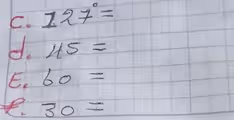 c. 127° =
d. 45 =
E. 60 =
f. 30 =